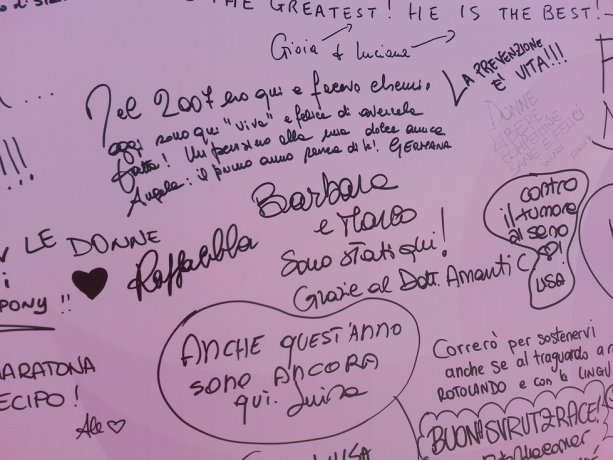 THE GREATEST! HE IS THE BEST!
Gioia & Luciana
LA PREVENZIONE
E' VITA!!!
Nel 2007 ero qui e facevo chemio.
oggi sono qui "viva" e felice di avercela
fatta! Un pensiero alla mia dolce amica
Angela: il primo anno senza di lei. GERMANA
DONNE
LIBERE
SANE E FELICI
Barbara
e Marco
Sono stati qui!
Grazie al Dott. Amanti
CONTRO
il tumore
al seno
USA
LE DONNE
PONY!!
Raffaella
ANCHE QUEST'ANNO
SONO ANCORA
QUI. Luisa
MARATONA
ECIPO!
Ale
Correrò per sostenervi
anche se al traguardo
ROTOLANDO e con la LINGU
BUONA RACE!